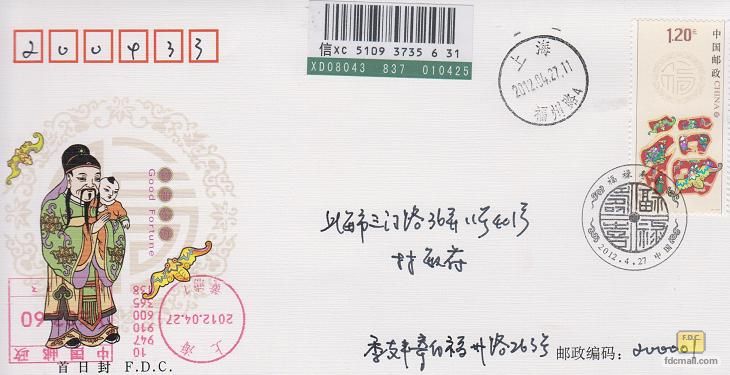 200433
信XC 5109 3735 6 31
XD08043 837 010425
上海
2012.04.27.11
福州路4
1.20元
中国邮政 CHINA
Good Fortune
福禄寿喜
2012.4.27 中国
上海市三门路36弄11号401号
季友来寄自福州路263号
邮政编码: 200001
2012.04.27
上海
中国邮政
60
138
365
600
910
947
10
首日封 F.D.C.
F.D.C.
fdcmall.com